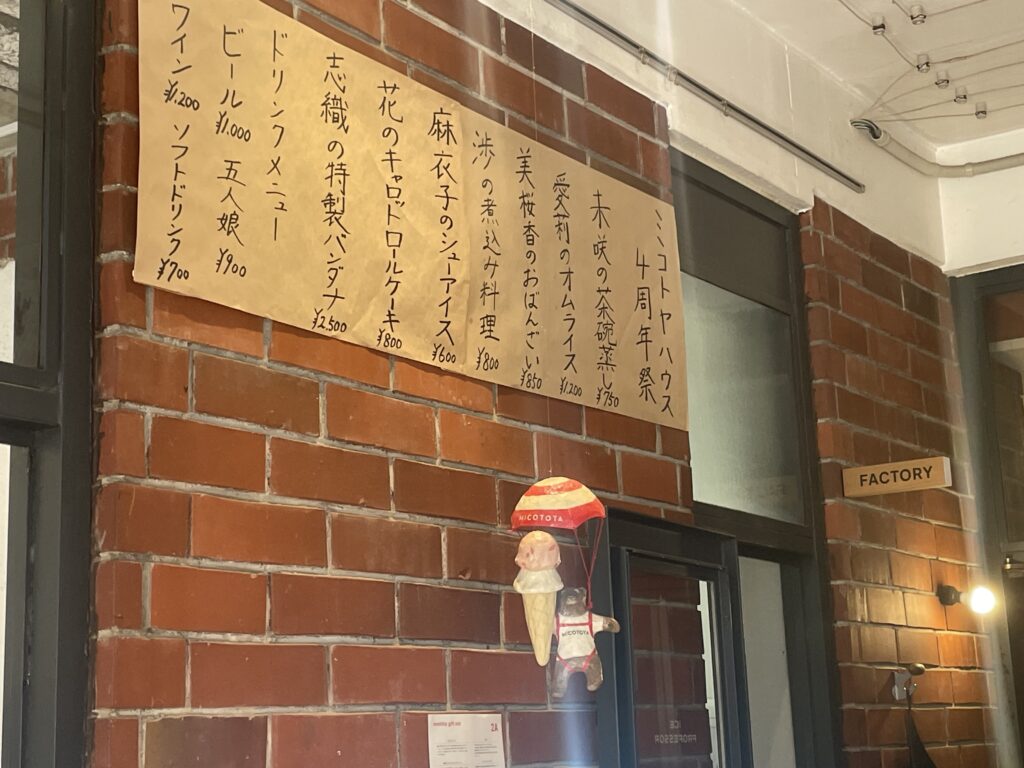 ミコトヤハウス
4周年祭
未咲の茶碗蒸し ¥750
愛莉のオムライス ¥1,200
美桜香のおばんざい ¥850
渉の煮込み料理 ¥800
麻衣子のシューアイス ¥600
花のキャロットロールケーキ ¥800
志織の特製バンダナ ¥2,500
ドリンクメニュー
ビール ¥1,000 五人娘 ¥900
ワイン ¥1,200 ソフトドリンク ¥700
FACTORY
MICOTOYA
MICOTOYA
ICE
PROFESSOR
2A